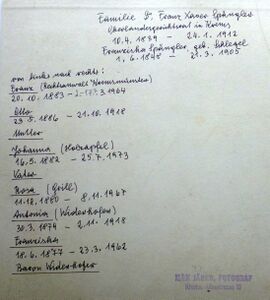 Familie Dr. Franz Xaver Spängler
Oberlandesgerichtsrat in Krems
10.4.1839 - 24.1.1912
Franziska Spängler, geb. Schlegel
1.6.1848 - 21.3.1905
von links nach rechts:
Franz (Rechtsanwalt
20.10.1883 - 1964
Otto
23.5.1886 - 21.10.1918
Mutter
Johanna (Holzapfel)
16.5.1882 - 25.7.1973
Vater
Rosa (Grill)
11.12.1880 - 8.11.1967
Antonia (Widerhofer)
30.3.1874 - 2.11.1918
Franziska
18.6.1877 - 23.3.1962
Baron Widerhofer
MAX JÄGER, FOTOGRAF